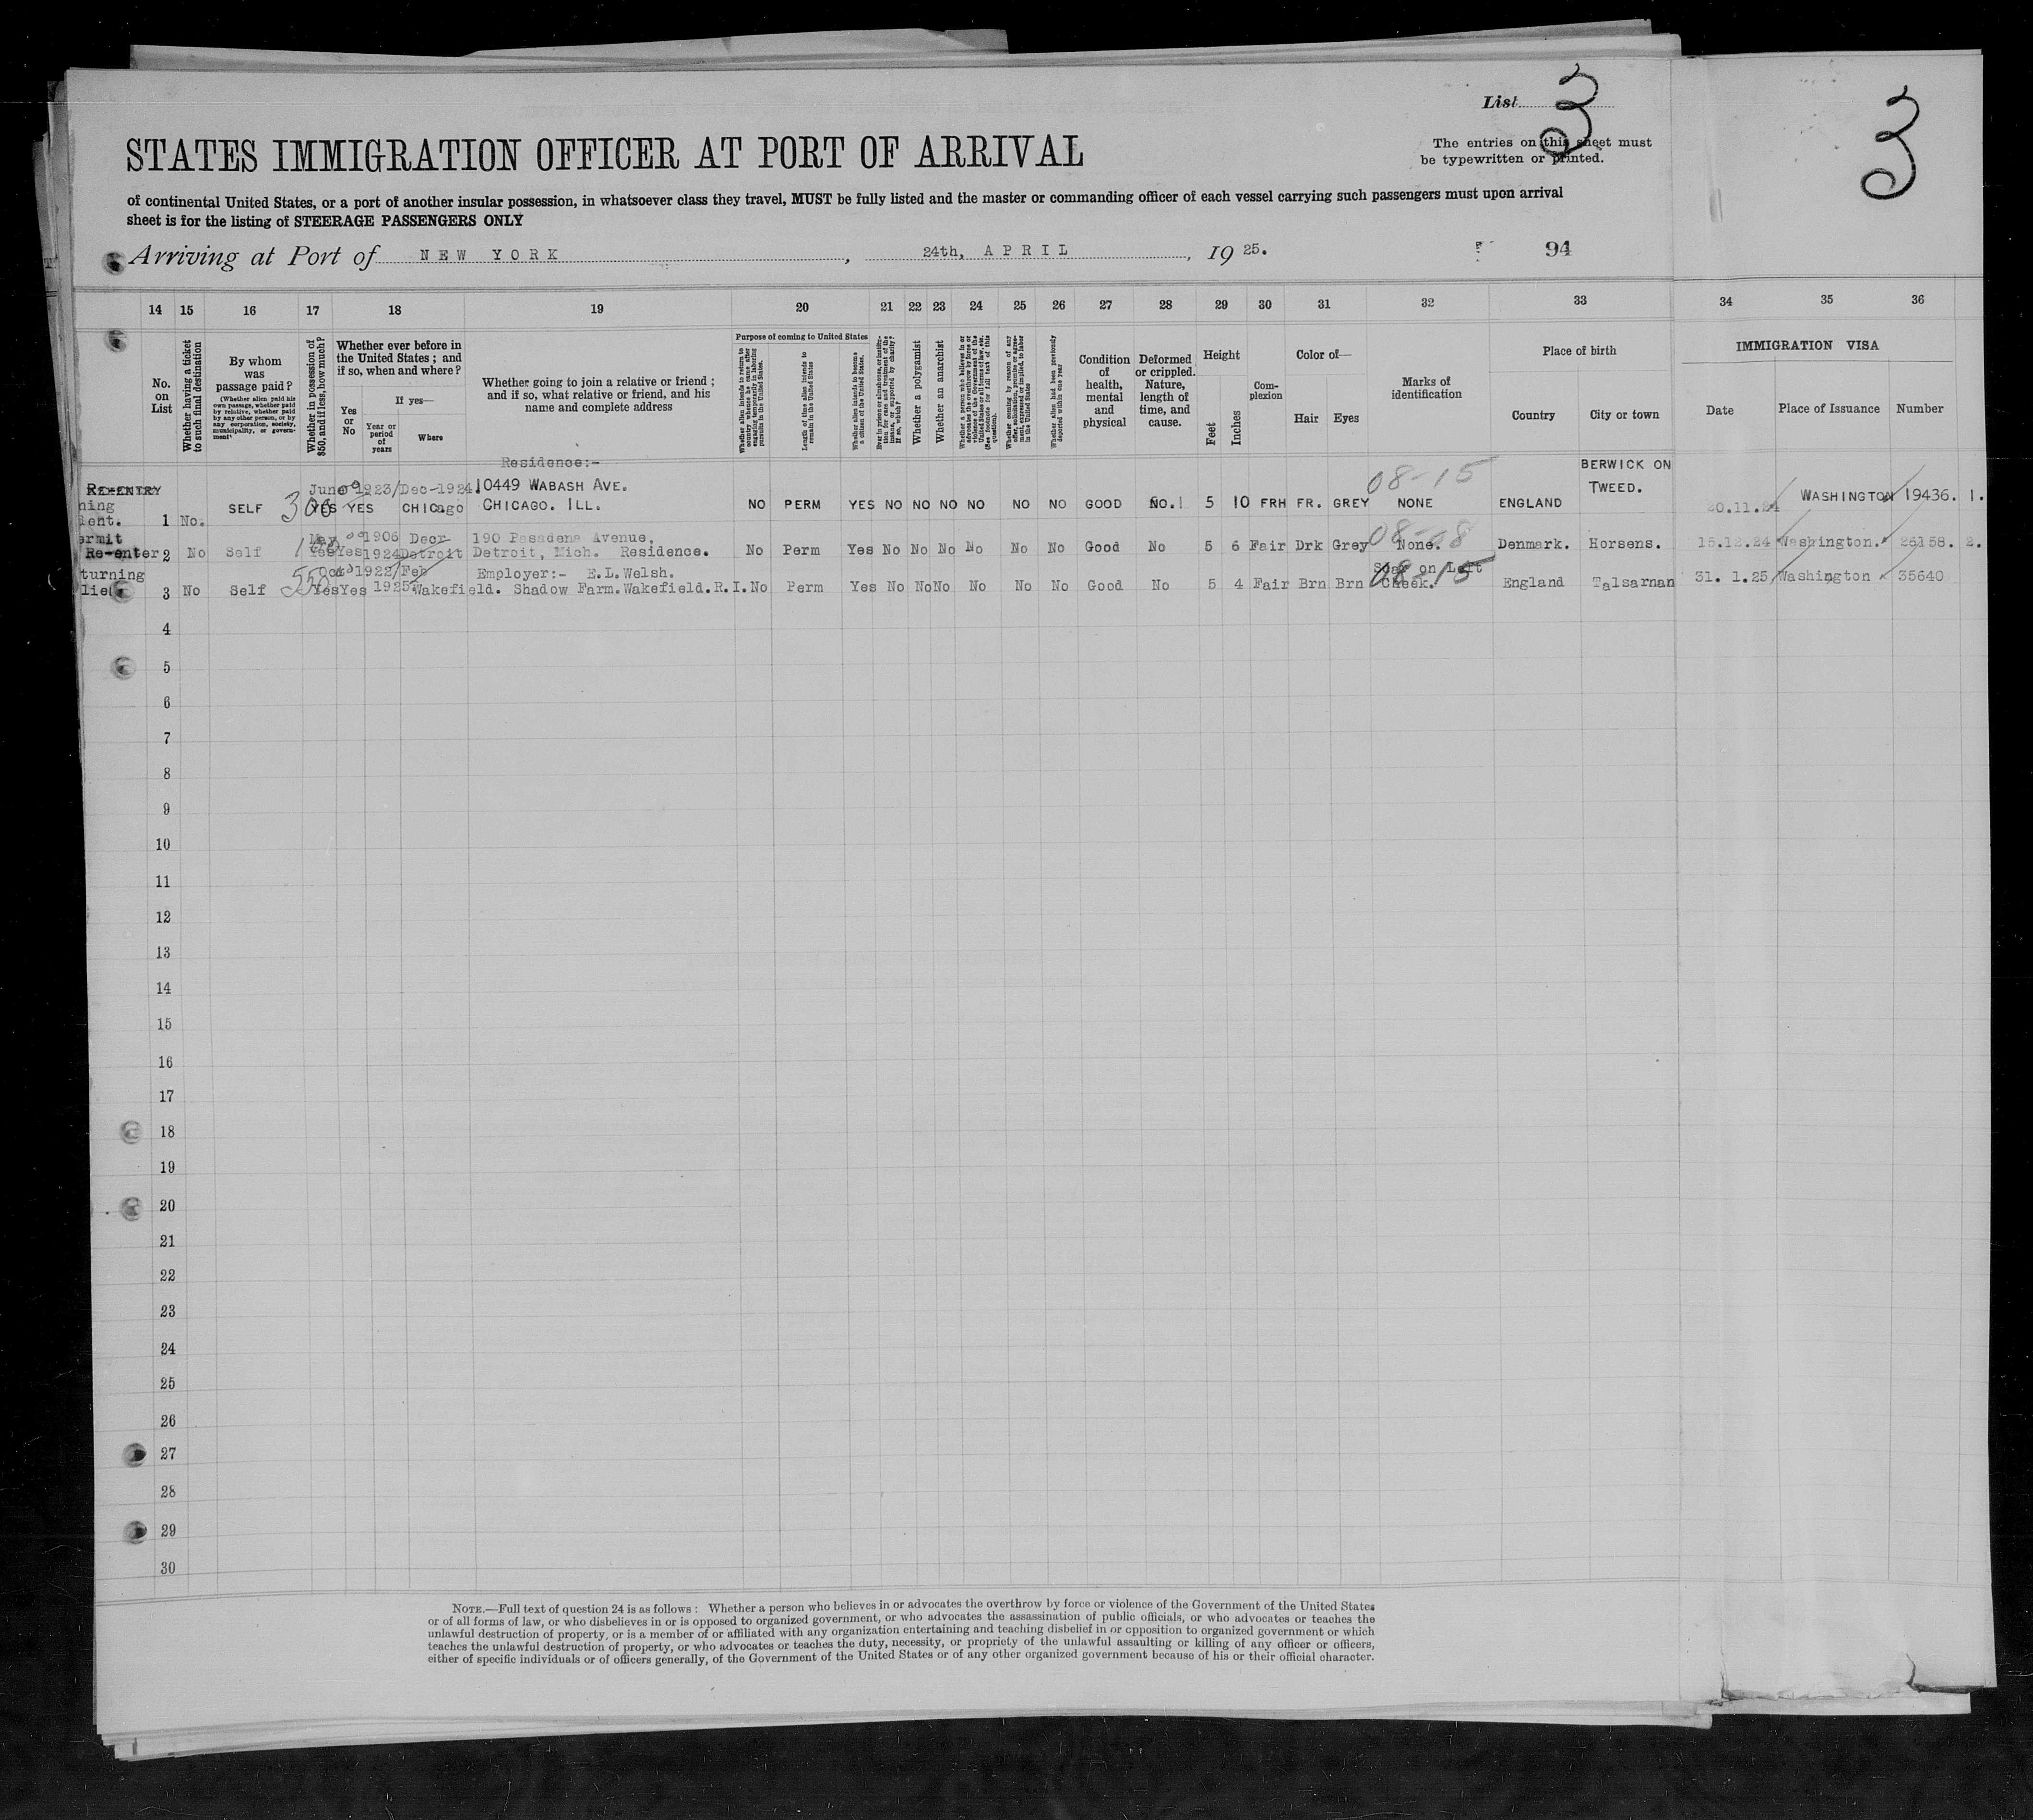 List 3
3
STATES IMMIGRATION OFFICER AT PORT OF ARRIVAL
The entries on this sheet must
be typewritten or printed.
of continental United States, or a port of another insular possession, in whatsoever class they travel, MUST be fully listed and the master or commanding officer of each vessel carrying such passengers must upon arrival
sheet is for the listing of STEERAGE PASSENGERS ONLY
Arriving at Port of NEW YORK, 24th, APRIL, 1925.
94
14 15 16 17 18 19 20 21 22 23 24 25 26 27 28 29 30 31 32 33 34 35 36
No. on List
Whether having a ticket to such final destination
By whom was passage paid?
(Whether alien paid his own passage, whether paid by relative, whether paid by any other person, or by any corporation, society, municipality, or government)
Whether in possession of $50, and if less, how much?
Whether ever before in the United States; and if so, when and where?
Yes or No
If yes—
Year or period of years
Where
Whether going to join a relative or friend; and if so, what relative or friend, and his name and complete address
Purpose of coming to United States
Whether alien intends to return to country whence he came after engaging temporarily in laboring pursuits in the United States.
Length of time alien intends to remain in the United States
Whether alien intends to become a citizen of the United States.
Whether a polygamist
Whether an anarchist
Whether alien had been previously deported within one year
Condition of health, mental and physical
Deformed or crippled. Nature, length of time, and cause.
Height
Feet
Inches
Complexion
Color of—
Hair
Eyes
Marks of identification
Place of birth
Country
City or town
IMMIGRATION VISA
Date
Place of Issuance
Number
Residence:-
RE-ENTRY June 1923/Dec-1924 10449 WABASH AVE. 08-15 BERWICK ON TWEED.
1 No. SELF 300 YES YES CHICAGO CHICAGO. ILL. NO PERM YES NO NO NO NO NO NO GOOD NO. 5 10 FRH FR. GREY NONE ENGLAND 20.11.24 WASHINGTON 19436. 1.
May 1906 Decr 190 Pasadena Avenue, 08-08
Re-enter 2 No Self Yes Yes 1924 Detroit Detroit, Mich. Residence. No Perm Yes No No No No No No Good No 5 6 Fair Drk Grey None. Denmark. Horsens. 15.12.24 Washington. 26158. 2.
turning 1922/Feb Employer:- E.L.Welsh. Scar on Left 08-15
3 No Self Yes Yes 1925 Wakefield. Shadow Farm. Wakefield. R.I. No Perm Yes No No No No No No Good No 5 4 Fair Brn Brn Cheek. England Talsarnan 31. 1.25 Washington 35640
4
5
6
7
8
9
10
11
12
13
14
15
16
17
18
19
20
21
22
23
24
25
26
27
28
29
30
NOTE.—Full text of question 24 is as follows: Whether a person who believes in or advocates the overthrow by force or violence of the Government of the United States
or of all forms of law, or who disbelieves in or is opposed to organized government, or who advocates the assassination of public officials, or who advocates or teaches the
unlawful destruction of property, or is a member of or affiliated with any organization entertaining and teaching disbelief in or opposition to organized government or which
teaches the unlawful destruction of property, or who advocates or teaches the duty, necessity, or propriety of the unlawful assaulting or killing of any officer or officers,
either of specific individuals or of officers generally, of the Government of the United States or of any other organized government because of his or their official character.